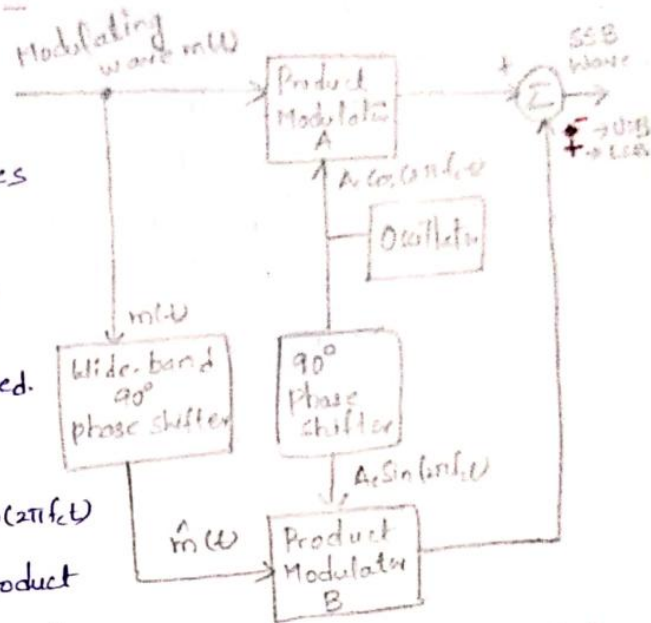 Modulating
wave m(t)
Product
Modulator
A
+
Σ
SSB
Wave
- → USB
+ → LSB
es
Ac cos(2πfct)
Oscillator
m(t)
Wide-band
90°
phase shifter
ed.
90°
phase
shifter
Ac Sin(2πfct)
(2πfct)
m̂(t)
Product
Modulator
B
oduct